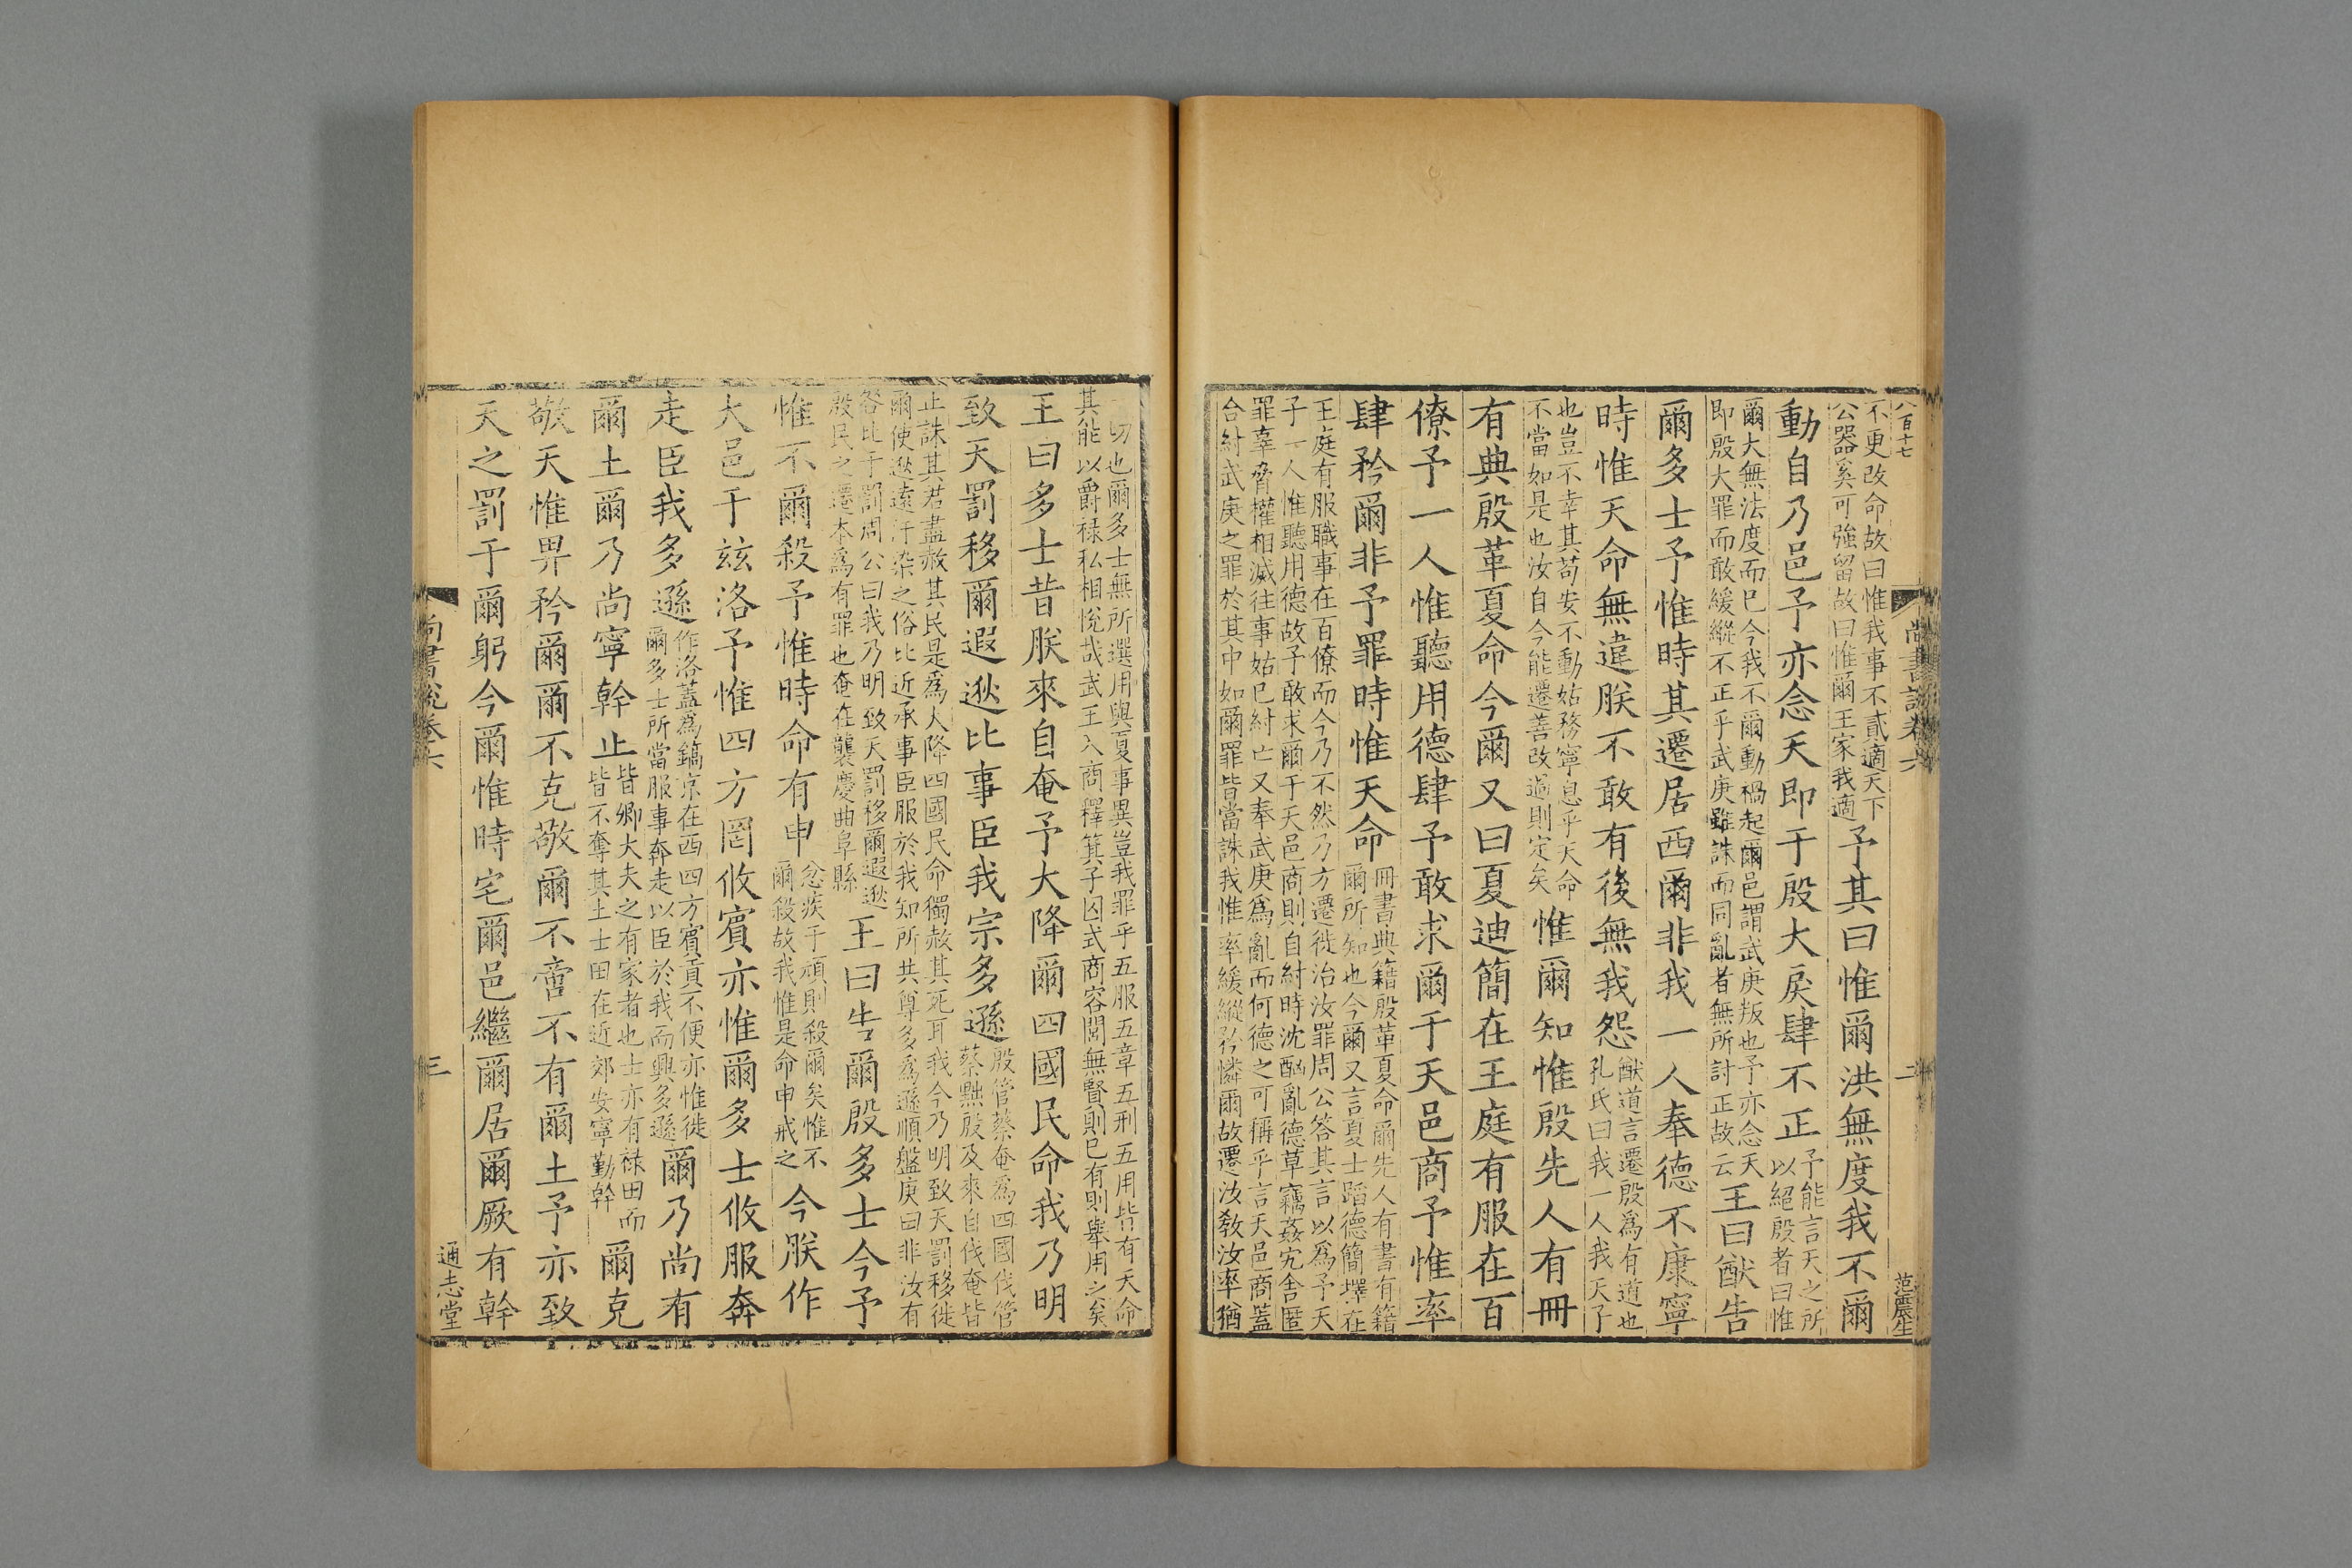 八百十七
尚書說卷六
二
范震生
不更改命故曰惟我事不貳適天下
公器奚可強留故曰惟爾王家我適
予其曰惟爾洪無度我不爾
動自乃邑予亦念天即于殷大戾肆不正
予能言天之所
以絕殷者曰惟
爾大無法度而巳今我不爾動禍起爾邑謂武庚叛也予亦念天
即殷大罪而敢緩縱不正乎武庚雖誅而同亂者無所討正故云
王曰猷告
爾多士予惟時其遷居西爾非我一人奉德不康寧
時惟天命無違朕不敢有後無我怨
猷道言遷殷爲有道也
孔氏曰我一人我天子
也豈不幸其苟安不動姑務寧息乎天命
不當如是也汝自今能遷善改過則定矣
惟爾知惟殷先人有冊
有典殷革夏命今爾又曰夏迪簡在王庭有服在百
僚予一人惟聽用德肆予敢求爾于天邑商予惟率
肆矜爾非予罪時惟天命
冊書典籍殷革夏命爾先人有書有籍
爾所知也今爾又言夏士蹈德簡擇在
王庭有服職事在百僚而今乃不然乃方遷徙治汝罪周公答其言以爲予天
子一人惟聽用德故予敢求爾于天邑商則自紂時沈酗亂德草竊姦宄舍匿
罪辜脅權相滅往事姑巳紂亡又奉武庚爲亂而何德之可稱乎言天邑商蓋
合紂武庚之罪於其中如爾罪皆當誅我惟率緩縱矜憐爾故遷汝敎汝率猶
一切也爾多士無所選用與夏事異豈我罪乎五服五章五刑五用皆有天命
其能以爵禄私相悅哉武王入商釋箕子囚式商容閭無賢則巳有則舉用之矣
王曰多士昔朕來自奄予大降爾四國民命我乃明
致天罰移爾遐逖比事臣我宗多遜
殷管蔡奄爲四國伐管
蔡黜殷及來自伐奄皆
止誅其君盡赦其民是爲大降四國民命獨赦其死耳我今乃明致天罰移徙
爾使逖遠汙染之俗比近承事臣服於我知所共尊多爲遜順盤庚曰非汝有
咎比于罰周公曰我乃明致天罰移爾遐逖
殷民之遷本爲有罪也奄在襲慶曲阜縣
王曰告爾殷多士今予
惟不爾殺予惟時命有申
忿疾于頑則殺爾矣惟不
爾殺故我惟是命申戒之
今朕作
大邑于兹洛予惟四方罔攸賓亦惟爾多士攸服奔
走臣我多遜
作洛蓋爲鎬京在西四方賓貢不便亦惟徙
爾多士所當服事奔走以臣於我而興多遜
爾乃尚有
爾土爾乃尚寧幹止
皆卿大夫之有家者也士亦有禄田而
皆不奪其土士田在近郊安寧勤幹
爾克
敬天惟畀矜爾爾不克敬爾不啻不有爾土予亦致
天之罰于爾躬今爾惟時宅爾邑繼爾居爾厥有幹
尚書說卷六
三
通志堂